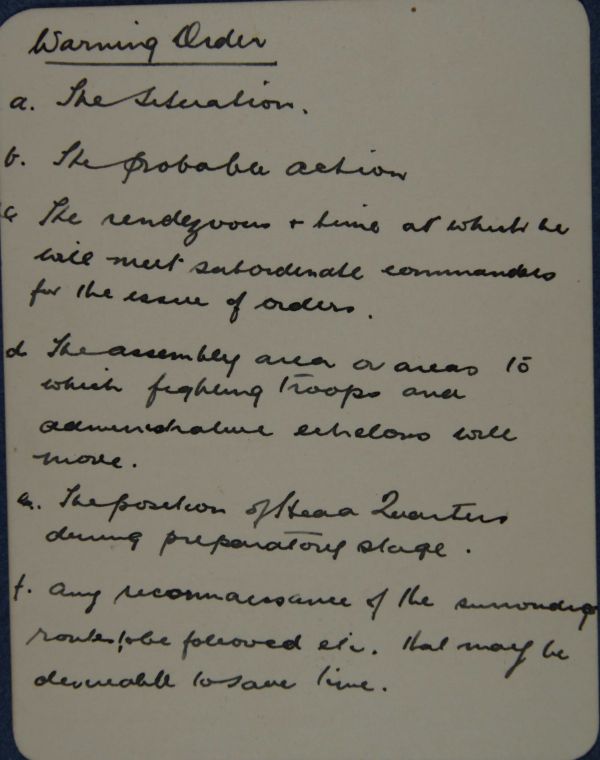 Warning Order
a. The situation.
b. The probable action
c The rendezvous + time at which he
will meet subordinate commanders
for the issue of orders.
d The assembly area or areas to
which fighting troops and
administrative echelons will
move.
e. The position of Head Quarters
during preparatory stage.
f. Any reconnaissance of the surrounding
routes to be followed etc. that may be
desireable to save time.